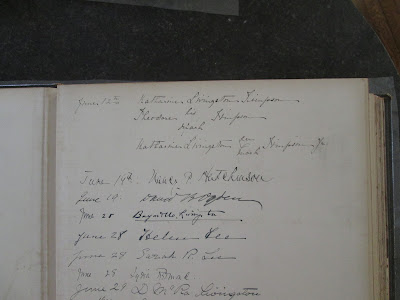 June 12th Katharine Livingston Timpson
Theodore his Timpson
mark
Katharine Livingston her mark Timpson Jr.
June 19th P Hutchinson
June 19. David B Ogden
June 28 Livingston
June 28 Helen Lee
June 28 Sarah R. Lee
June 28 Lydia
June 28 D. Livingston